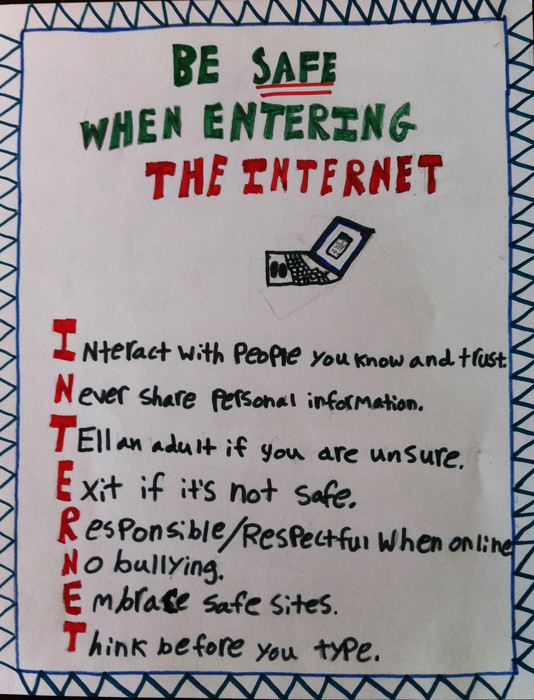 BE SAFE
WHEN ENTERING
THE INTERNET
INteract with People you know and trust.
Never share Personal information.
TEll an adult if you are unsure.
Exit if it's not safe.
Responsible/Respectful when online
No bullying.
Embrace safe sites.
Think before you type.